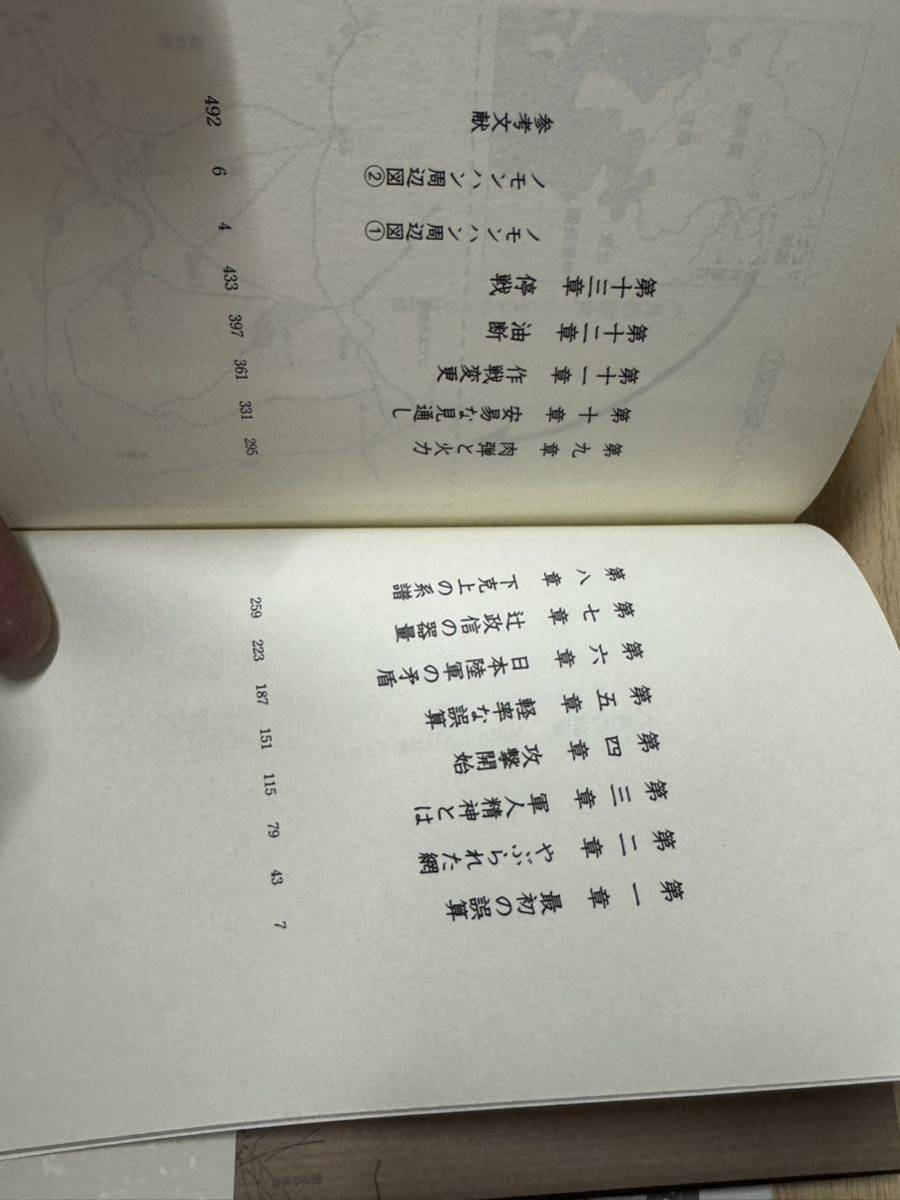 第一章 最初の誤算 7
第二章 やぶられた網 43
第三章 軍人精神とは 79
第四章 攻撃開始 115
第五章 軽率な誤算 151
第六章 日本陸軍の矛盾 187
第七章 辻政信の器量 223
第八章 下克上の系譜 259
第九章 肉弾と火力 295
第十章 安易な見通し 331
第十一章 作戦変更 361
第十二章 油断 397
第十三章 停戦 433
ノモンハン周辺図① 4
ノモンハン周辺図② 6
参考文献 492